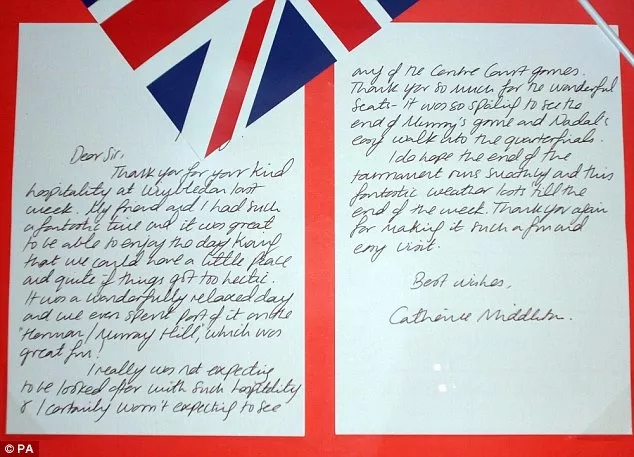 Dear Sir,
Thank you for your kind
hospitality at Wimbledon last
week. My friend and I had such
a fantastic time and it was great
to be able to enjoy the day knowing
that we could have a little peace
and quite if things got too hectic.
It was a wonderfully relaxed day
and we even spent part of it on the
"Henman/Murray Hill", which was
great fun!
I really was not expecting
to be looked after with such hospitality
& I certainly wasn't expecting to see
any of the Centre Court games.
Thank you so much for the wonderful
seats - it was so spoiling to see the
end of Murray's game and Nadal's
easy walk into the quarterfinals.
I do hope the end of the
tournament runs smoothly and this
fantastic weather lasts till the
end of the week. Thank you again
for making it such a fun and
easy visit.
Best wishes,
Catherine Middleton.
© PA